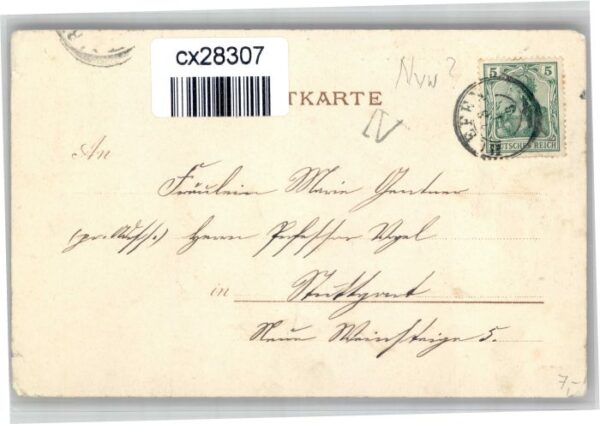 cx28307
TKARTE
Nvw?
IV
5 5
DEUTSCHES REICH
An
Fräulein Marie Gentner
(pr. Adress.) Herrn Professor Vogel
in Stuttgart
Neue Weinsteige 5.
7,-